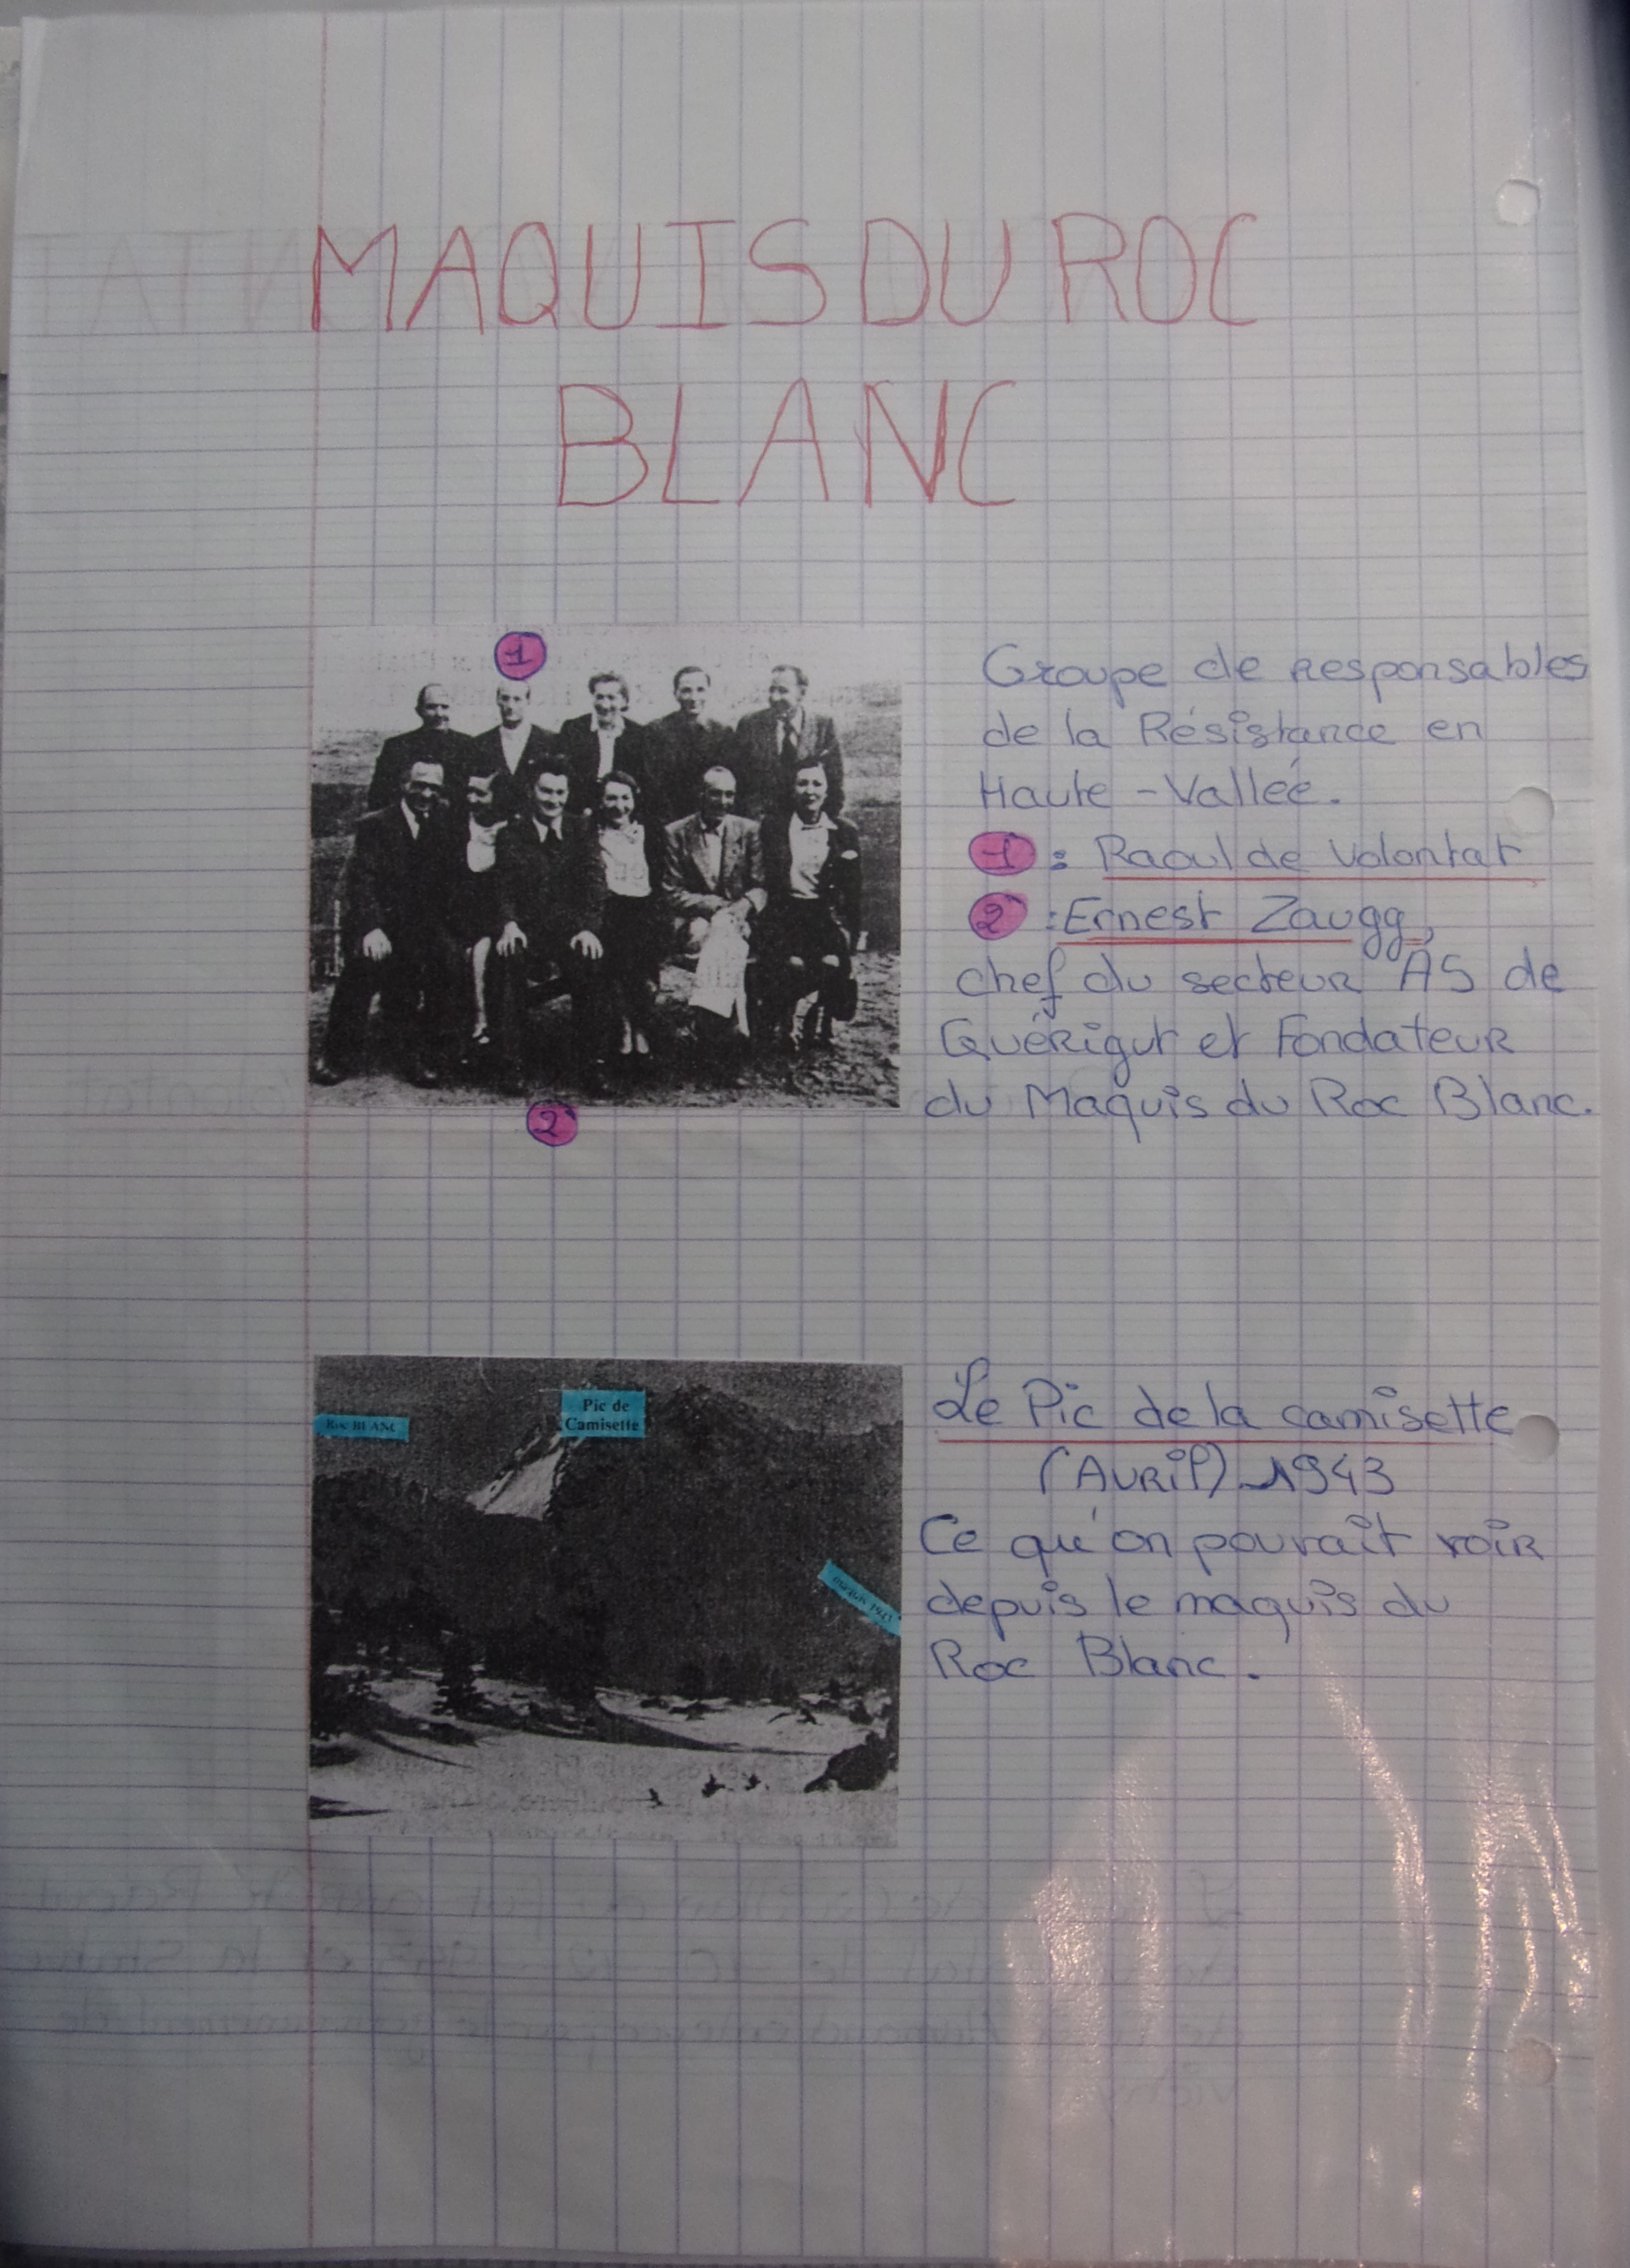 MAQUIS DU ROC
BLANC
1
Groupe de responsables
de la Résistance en
Haute-Vallée.
1 : Raoul de Volontat
2 : Ernest Zaugg,
chef du secteur AS de
Quérigut et Fondateur
du Maquis du Roc Blanc.
2
Roc BLANC
Pic de
Camisette
maquis 1943
Le Pic de la camisette
(Avril) 1943
Ce qu'on pouvait voir
depuis le maquis du
Roc Blanc.